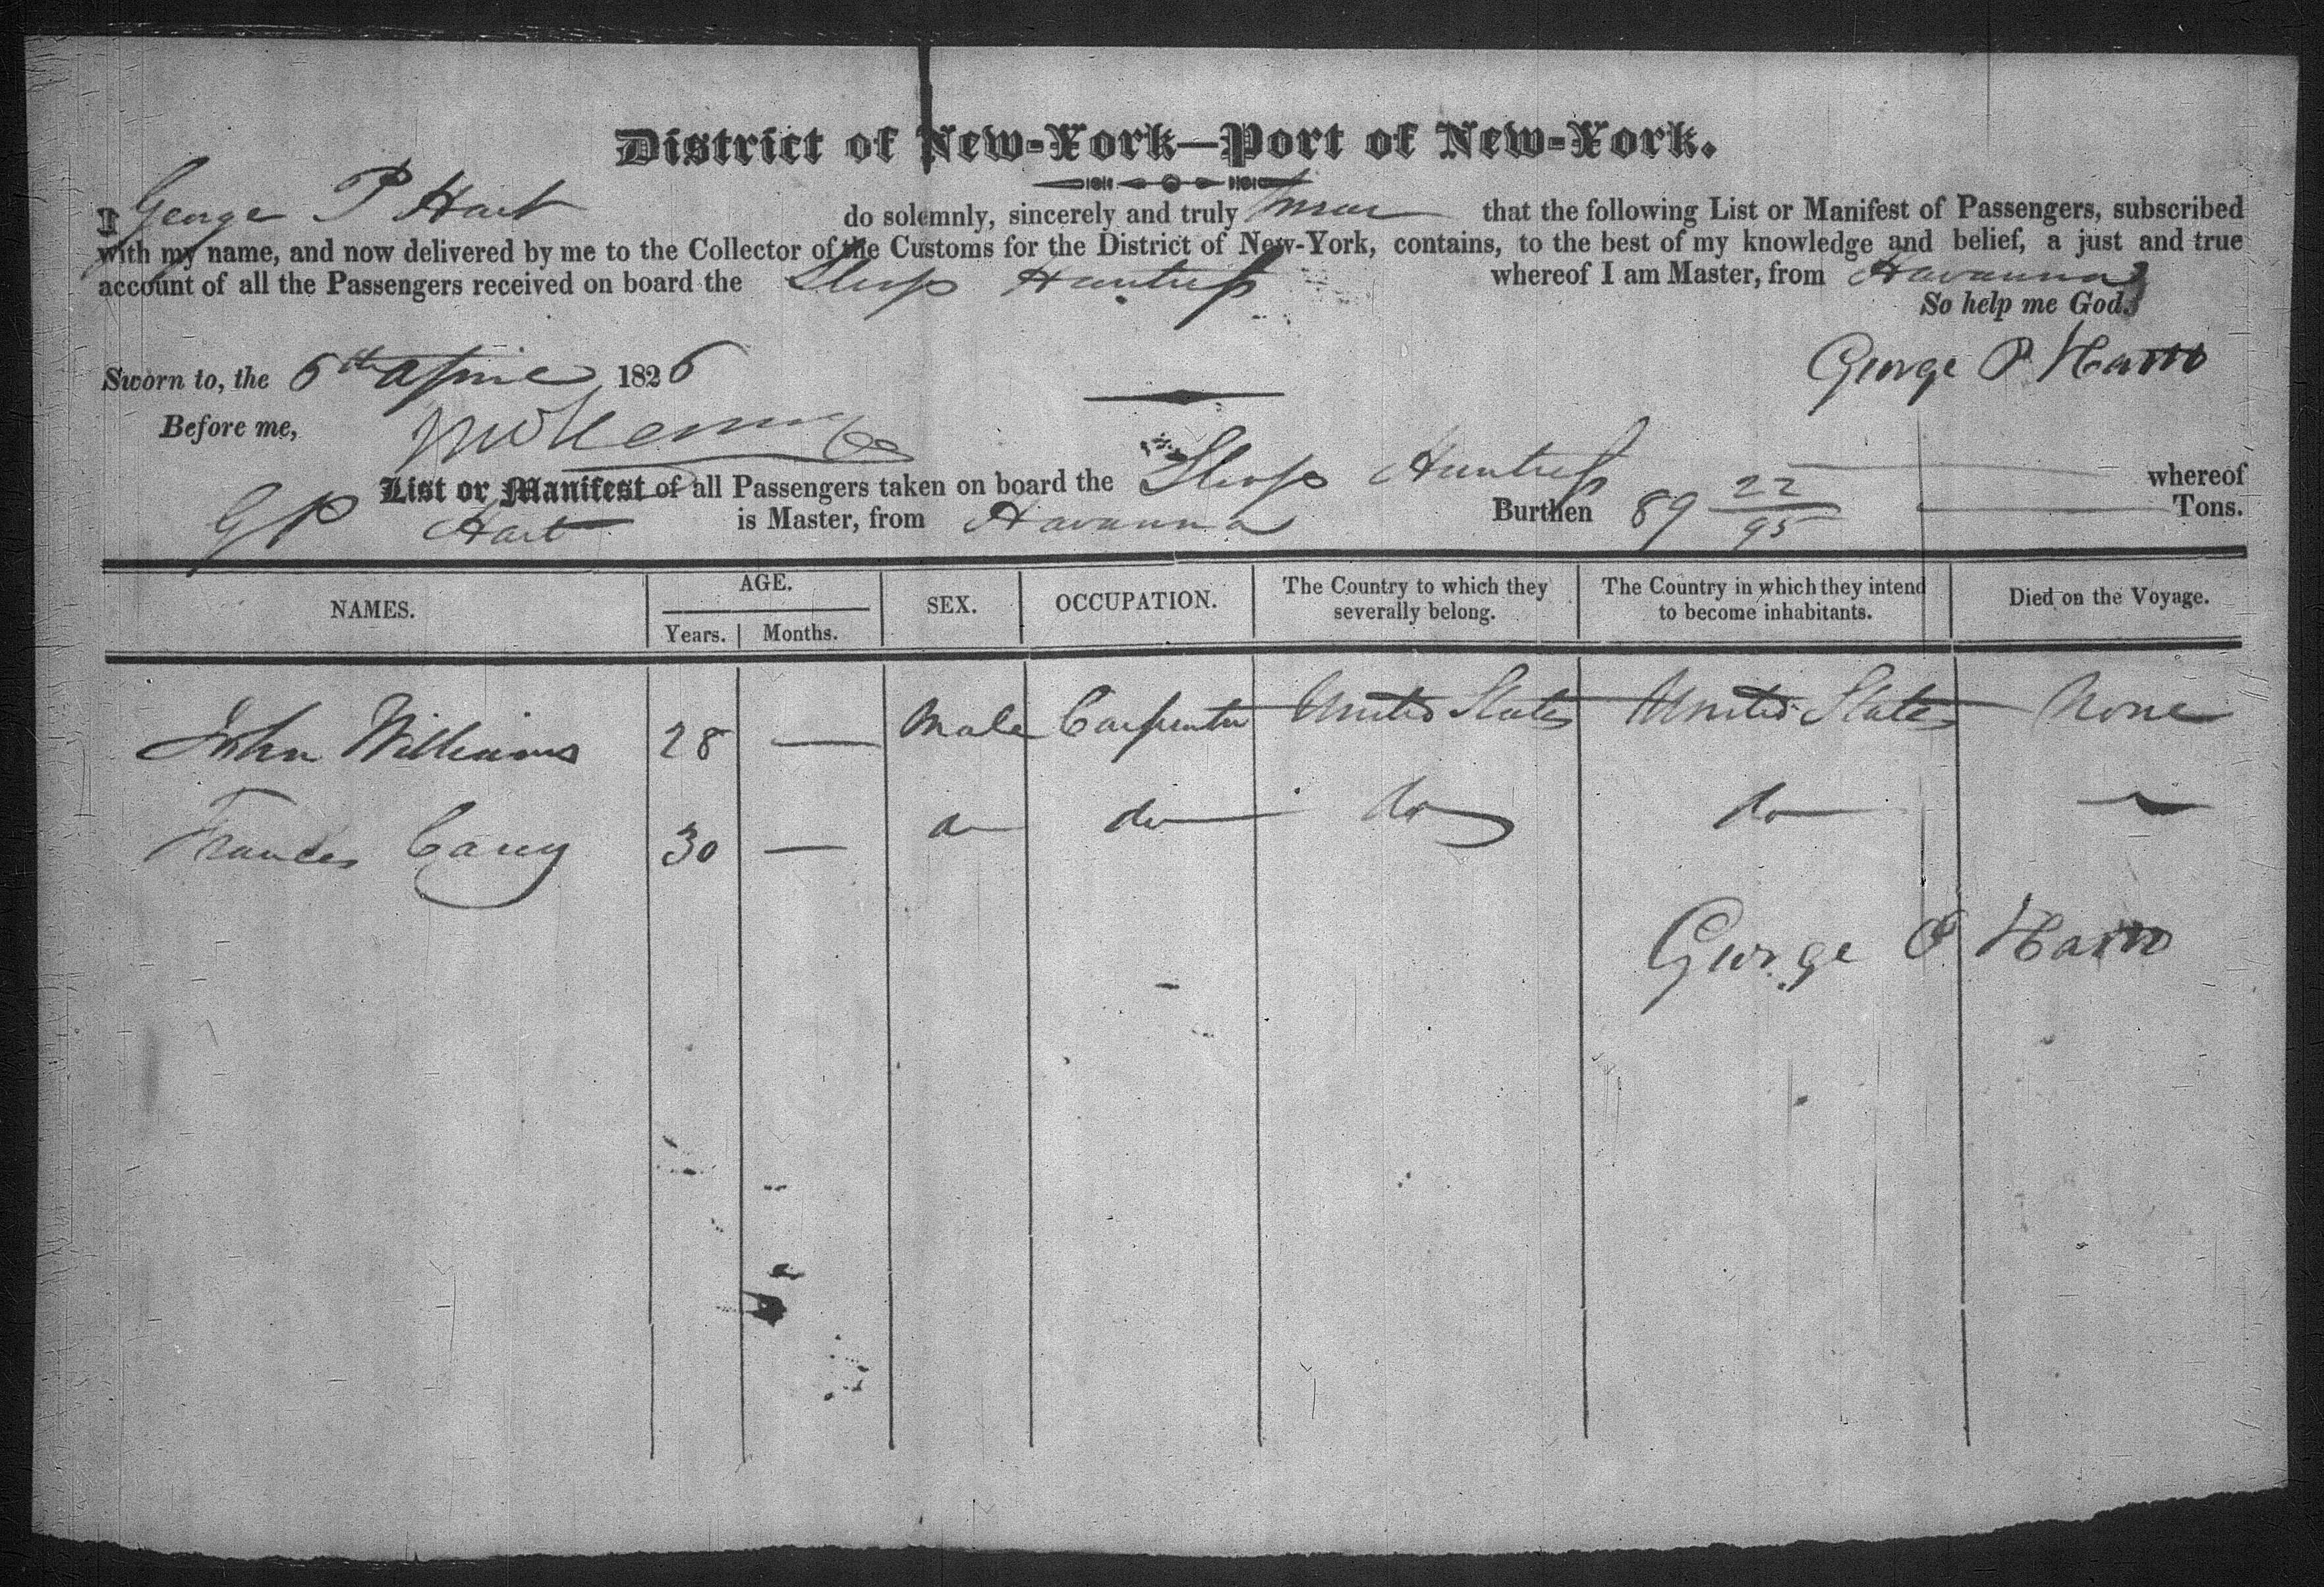 District of New-York—Port of New-York.
I George P Hart do solemnly, sincerely and truly swear that the following List or Manifest of Passengers, subscribed
with my name, and now delivered by me to the Collector of the Customs for the District of New-York, contains, to the best of my knowledge and belief, a just and true
account of all the Passengers received on board the Sloop Huntress whereof I am Master, from Havanna
So help me God.
Sworn to, the 6th April 1826
George P. Hart
Before me,
List or Manifest of all Passengers taken on board the Sloop Huntress whereof
G P Hart is Master, from Havanna Burthen 89 22/95 Tons.
NAMES. AGE. Years. Months. SEX. OCCUPATION. The Country to which they severally belong. The Country in which they intend to become inhabitants. Died on the Voyage.
John Williams 28 — Male Carpenter United States United States None
Frances Carey 30 — do do do do —
George P Hart